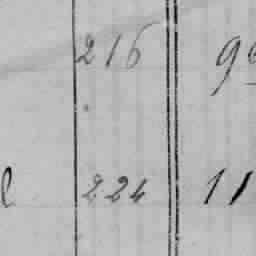 216 9
224 11